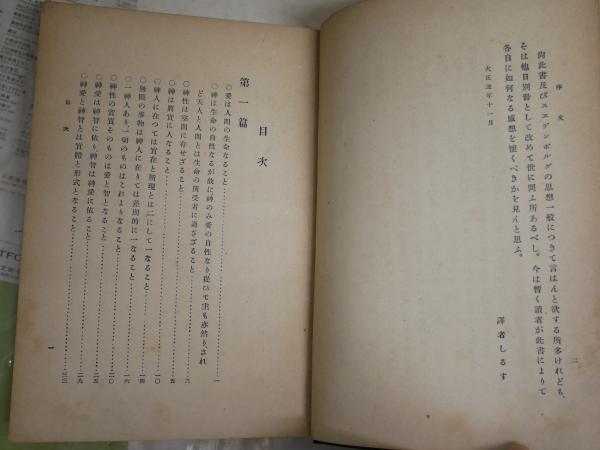 序文
二
尚此書及びスエデンボルグの思想一般につきて言はんと欲する所多けれども、
そは他日別書として改めて世に問ふ所あるべし。今は暫く讀者が此書によりて
各自に如何なる感想を懷くべきかを見んと思ふ。
大正三年十一月
譯者しるす
目次
第一篇
○愛は人間の生命なること……一
○神は生命の自性なるが故に神のみ愛の自性なり從ひて主も亦然り、され
ど天人と人間とは生命の所受者に過ぎざること……
○神性は空間に存せざること……六
○神は眞實に人なること……五
○神人に在つては實在と所現とは二にして一なること……一〇
○無限の事物は神人に在りては差別的に一なること……一四
○一神人あり、一切のものはこれよりなること……一六
○神性の實質そのものは愛と智となること……二〇
○神愛は神智に依り神智は神愛に依ること……二五
○神愛と神智とは實體と形式となること……三三
目次
一